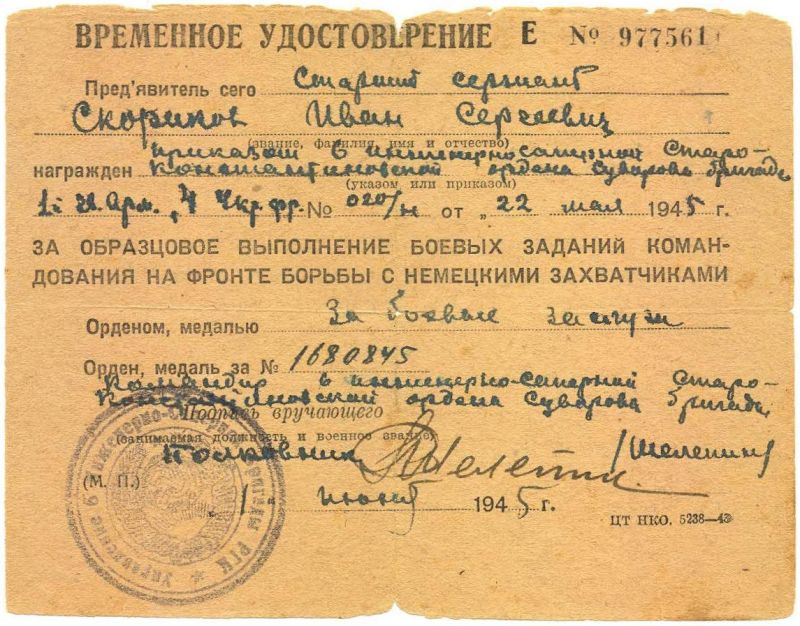 ВРЕМЕННОЕ УДОСТОВЕРЕНИЕ Е № 977561
Пред'явитель сего старший сержант
Скориков Иван Сергеевич
(звание, фамилия, имя и отчество)
приказом 6 инженерно саперной Старо-
награжден Константиновской ордена Суварова бригаде
(указом или приказом)
1й гв. Арм. 4 Укр. фр. № 020/н от „22 мая 1945 г.
ЗА ОБРАЗЦОВОЕ ВЫПОЛНЕНИЕ БОЕВЫХ ЗАДАНИЙ КОМАН-
ДОВАНИЯ НА ФРОНТЕ БОРЬБЫ С НЕМЕЦКИМИ ЗАХВАТЧИКАМИ
Орденом, медалью За боевые заслуги
Орден, медаль за № 1680845
Командир 6 инженерно-саперной Старо-
Константиновской ордена Суварова бригады
Подпись вручающего
(занимаемая должность и военное звание)
Полковник Шелепин /Шелепин/
(М. П.)
„1" июня 1945 г.
ЦТ НКО. 5238—43
Управление 6 Инженерно-Саперной Бригады РГК